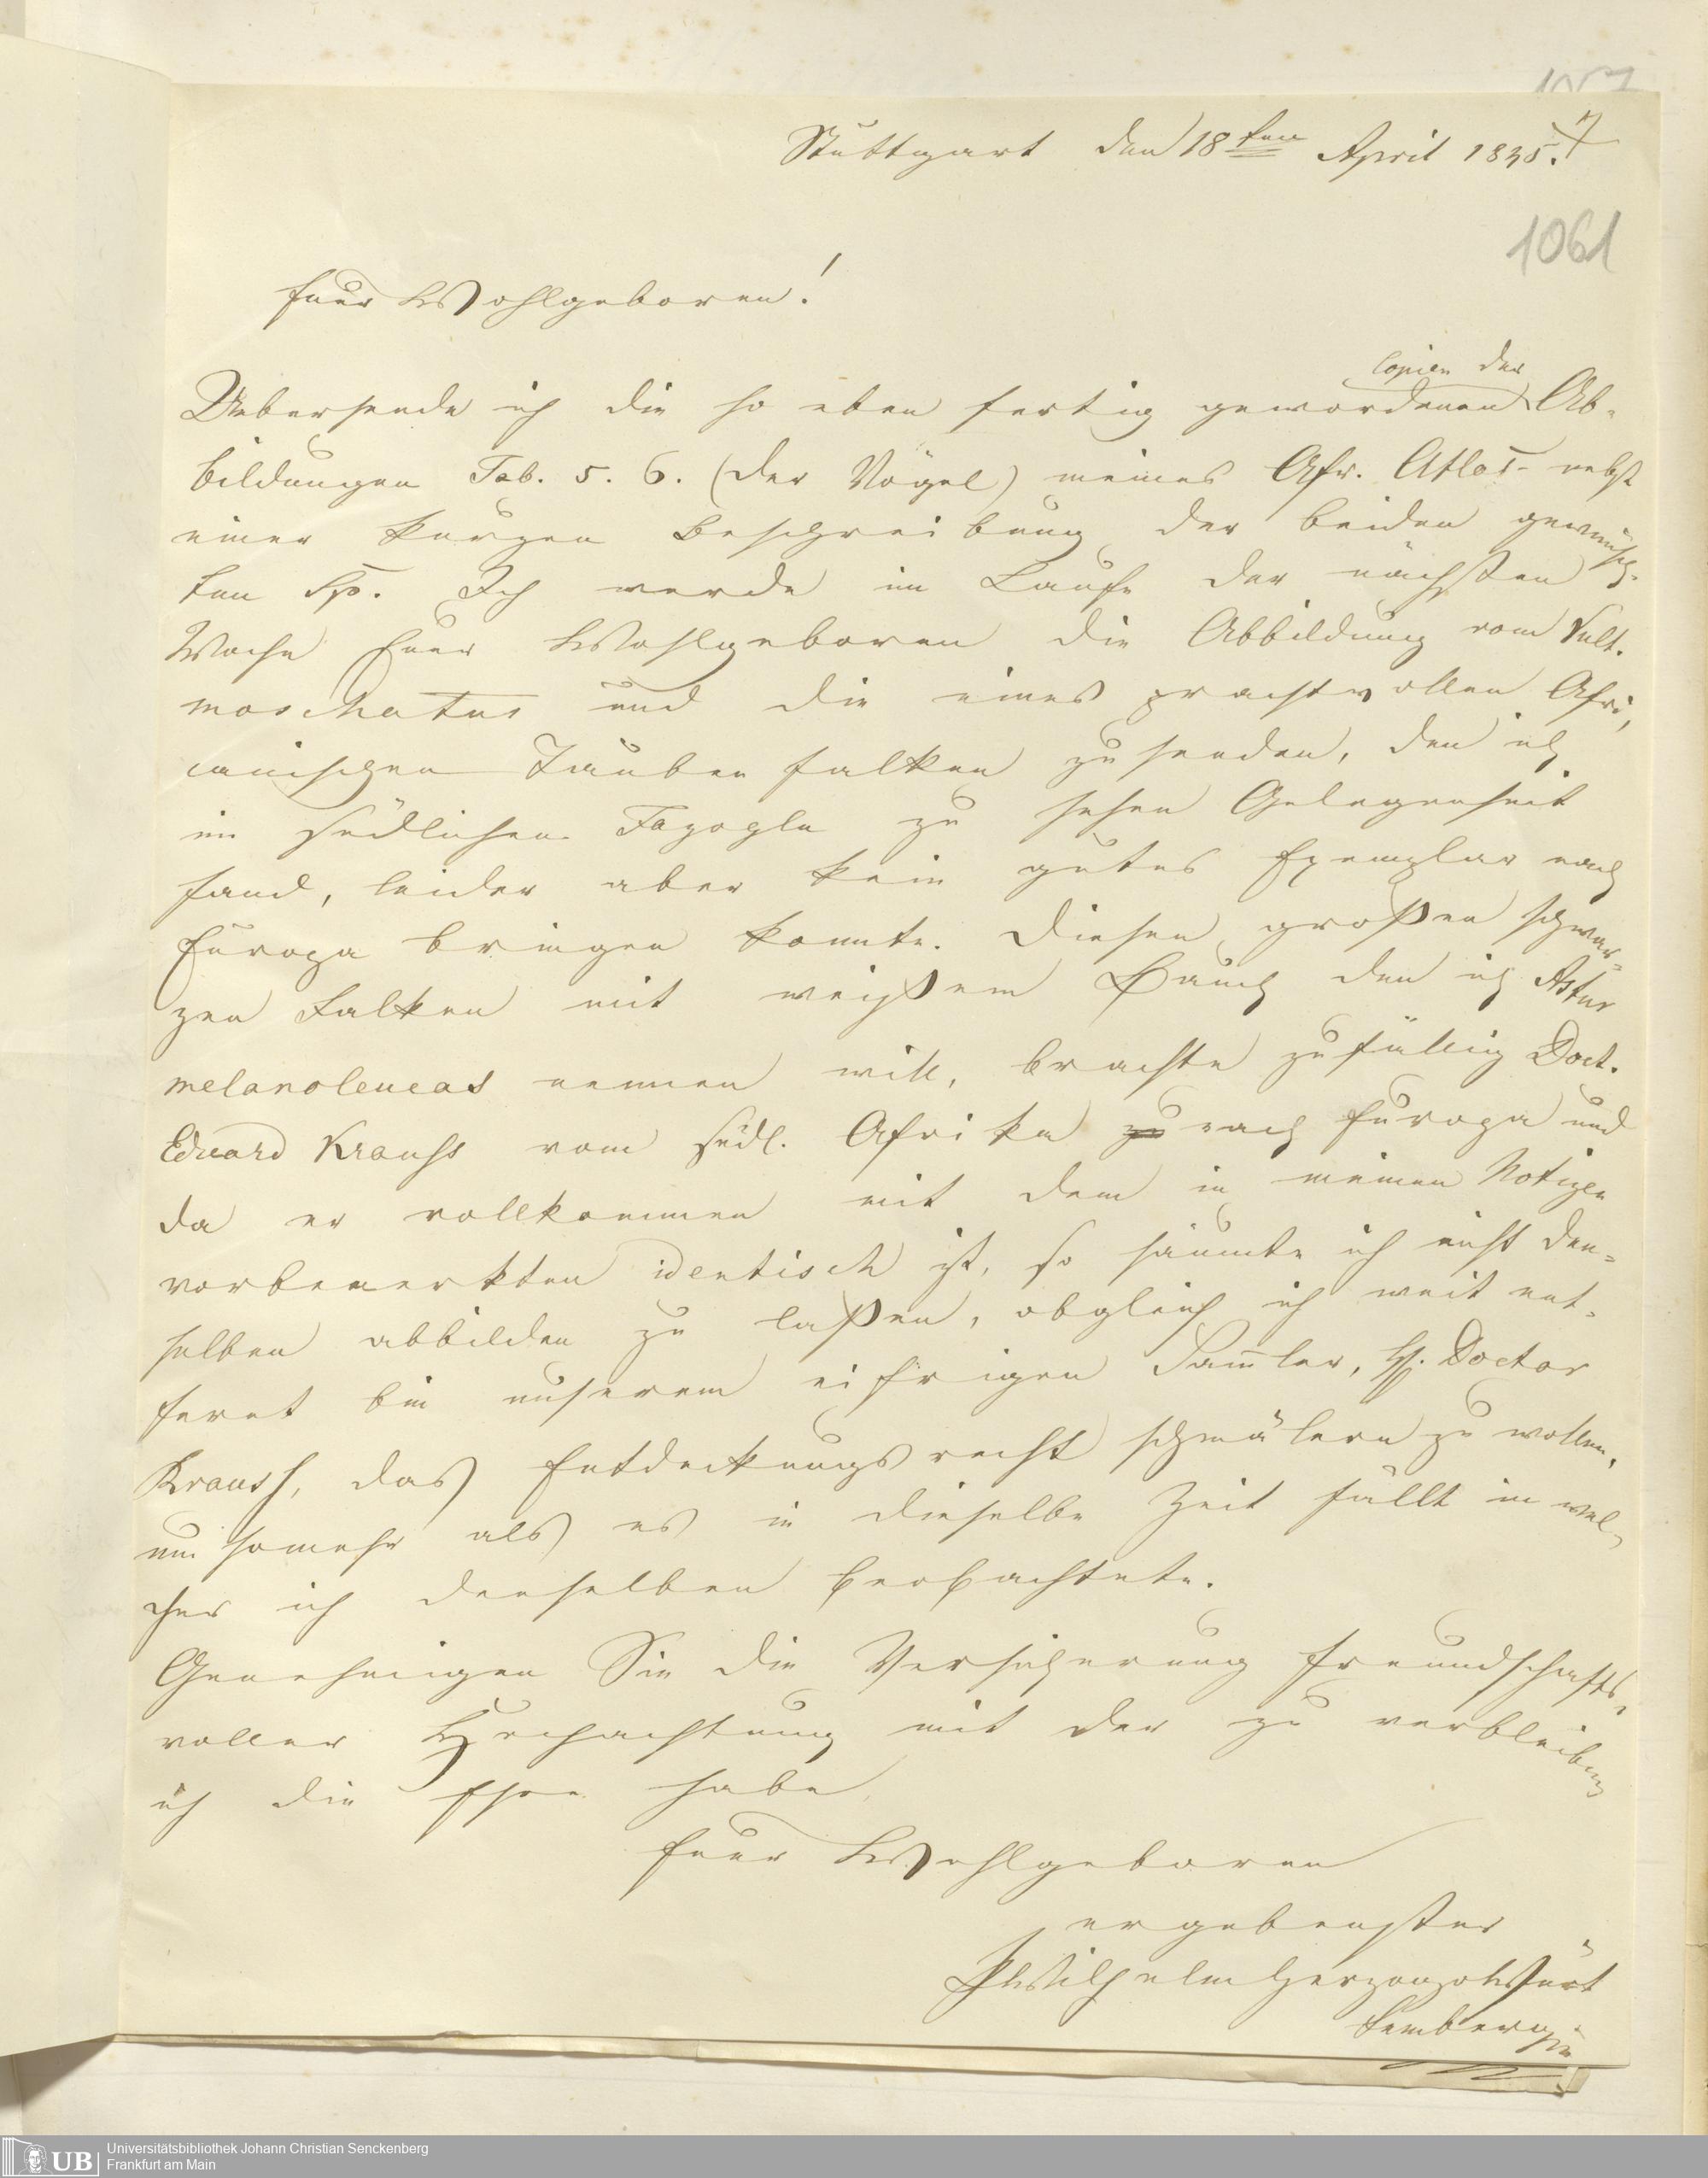 Stuttgart den 18ten April 1845.
1061
Euer Wohlgeboren!
Copien der
Uebersende ich die so eben fertig gewordenen Ab-
bildungen Tab. 5. 6. (der Vögel) meines Afr. Atlas nebst
einer kurzen Beschreibung der beiden gewünsch-
ten Sp. Ich werde im Laufe der nächsten
Woche Euer Wohlgeboren die Abbildung vom Vult.
moschatus und die eines prachtvollen Afri-
canischen Tauben falken zu senden, den ich
im südlichen Fazogla zu sehen Gelegenheit
fand, leider aber kein gutes Exemplar nach
Europa bringen konnte. Diesen großen schwar-
zen Falken mit weißem Bauch den ich Astur
melanoleucas nennen will, brachte zufällig Doct.
Eduard Krauss vom südl. Afrika nach Europa und
da er vollkommen mit dem in meinen Notizen
vorbemerkten identisch ist, so säumte ich nicht den-
selben abbilden zu laßen, obgleich ich weit ent-
fernt bin unserem eifrigen Sammler, H. Doctor
Krauss, das Entdeckungsrecht schmälern zu wollen,
um somehr als es in dieselbe Zeit fällt in wel-
cher ich denselben beobachtete.
Genehmigen Sie die Versicherung freundschafts-
voller Hochachtung mit der zu verbleiben
ich die Ehre habe
Euer Wohlgeboren
ergebenster
PWilhelm Herzog v Würt
temberg
UB
Universitätsbibliothek Johann Christian Senckenberg
Frankfurt am Main